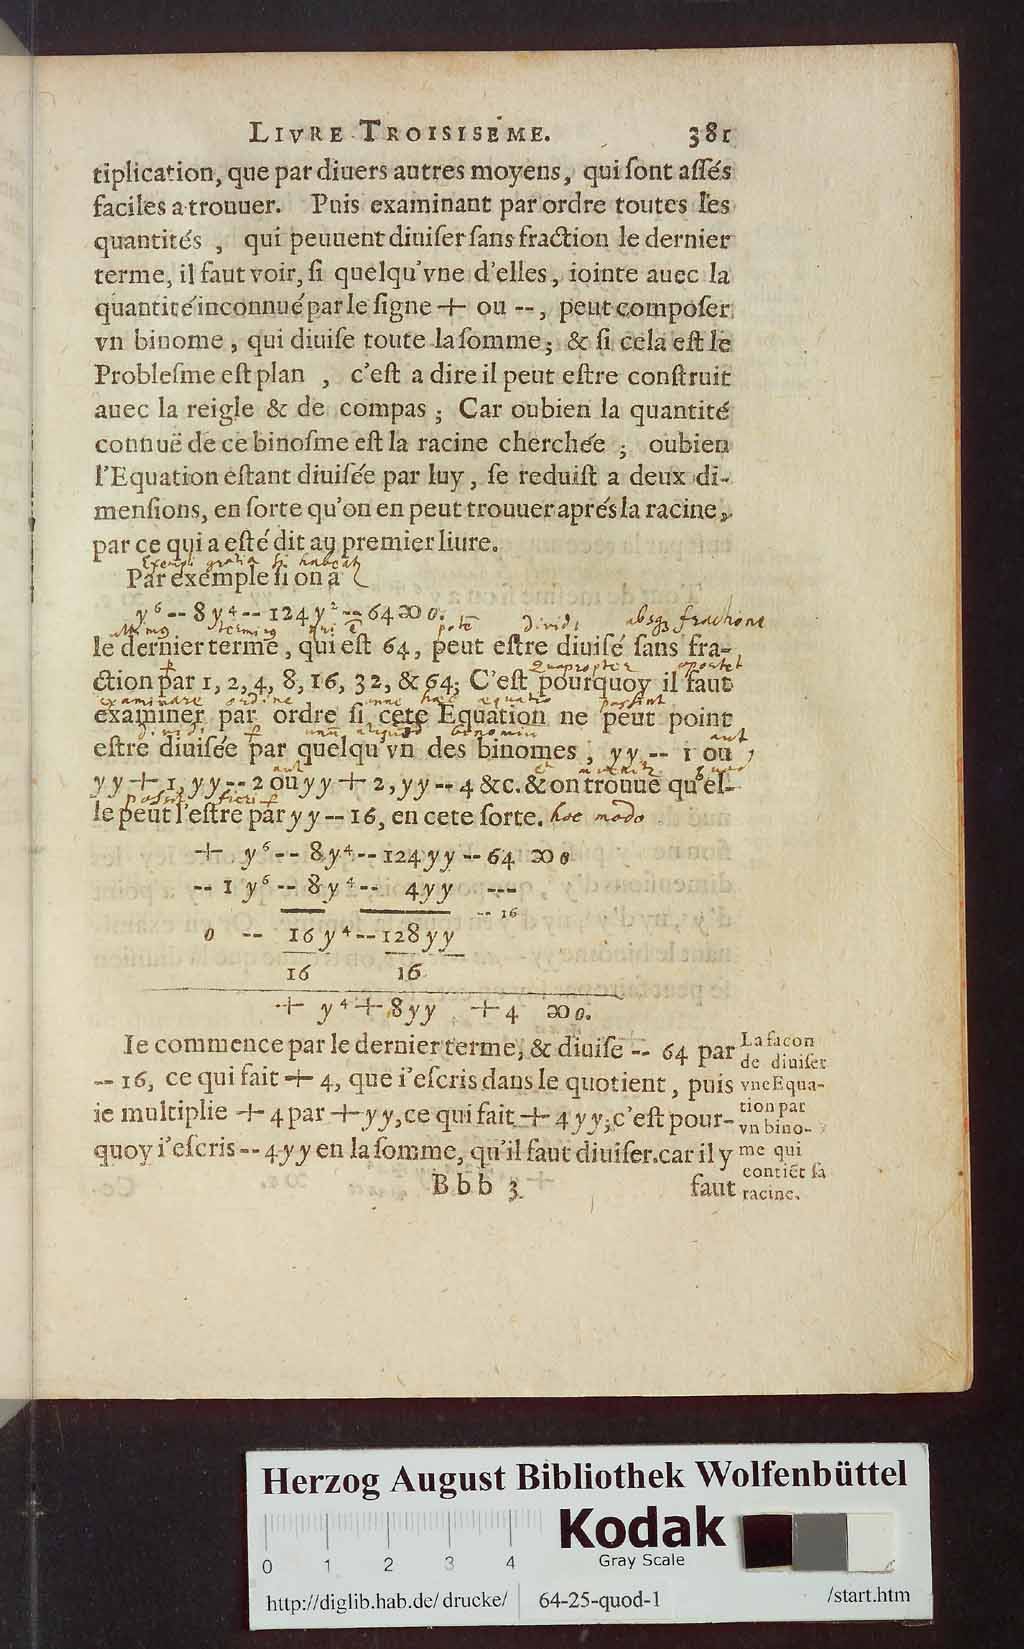 LIVRE TROISISEME. 381
tiplication, que par diuers autres moyens, qui ſont aſſés
faciles a trouuer. Puis examinant par ordre toutes les
quantités , qui peuuent diuiſer ſans fraction le dernier
terme, il faut voir, ſi quelqu'vne d'elles, iointe auec la
quantité inconnuë par le ſigne + ou --, peut compoſer
vn binome, qui diuiſe toute la ſomme; & ſi cela eſt le
Probleſme eſt plan , c'eſt a dire il peut eſtre conſtruit
auec la reigle & de compas; Car oubien la quantité
connuë de ce binoſme eſt la racine cherchée ; oubien
l'Equation eſtant diuiſée par luy, ſe reduiſt a deux di-
menſions, en ſorte qu'on en peut trouuer aprés la racine,
par ce qui a eſté dit au premier liure.
Exempli gratia si habeat
Par exemple ſi on a
y⁶ -- 8 y⁴ -- 124 y² -- 64 ꝏ 0.
terminq dividi absq fractione
le dernier terme, qui eſt 64, peut eſtre diuiſé ſans fra-
Quapropter oportet
ction par 1, 2, 4, 8, 16, 32, & 64; C'eſt pourquoy il faut
examinare ordine hæc equatio possint
examiner par ordre ſi cete Equation ne peut point
dividi aliquod aut
eſtre diuiſée par quelqu'vn des binomes, yy -- 1 ou
aut
yy + 1, yy -- 2 ou yy + 2, yy -- 4 &c. & on trouue qu'el-
possit fieri
le peut l'eſtre par yy -- 16, en cete ſorte. hoc modo
+ y⁶ -- 8 y⁴ -- 124 yy -- 64 ꝏ 0
-- 1 y⁶ -- 8 y⁴ -- 4 yy ---
-- 16
0 -- 16 y⁴ -- 128 yy
16 16
+ y⁴ + 8 yy + 4 ꝏ 0.
Ie commence par le dernier terme, & diuiſe -- 64 par
-- 16, ce qui fait + 4, que i'eſcris dans le quotient, puis
ie multiplie + 4 par + yy, ce qui fait + 4 yy; c'eſt pour-
quoy i'eſcris -- 4 yy en la ſomme, qu'il faut diuiſer. car il y
La facon
de diuiſer
vne Equa-
tion par
vn bino-
me qui
contiēt ſa
racine.
Bbb 3 faut
Herzog August Bibliothek Wolfenbüttel
Kodak
Gray Scale
0 1 2 3 4
http://diglib.hab.de/drucke/ 64-25-quod-1 /start.htm